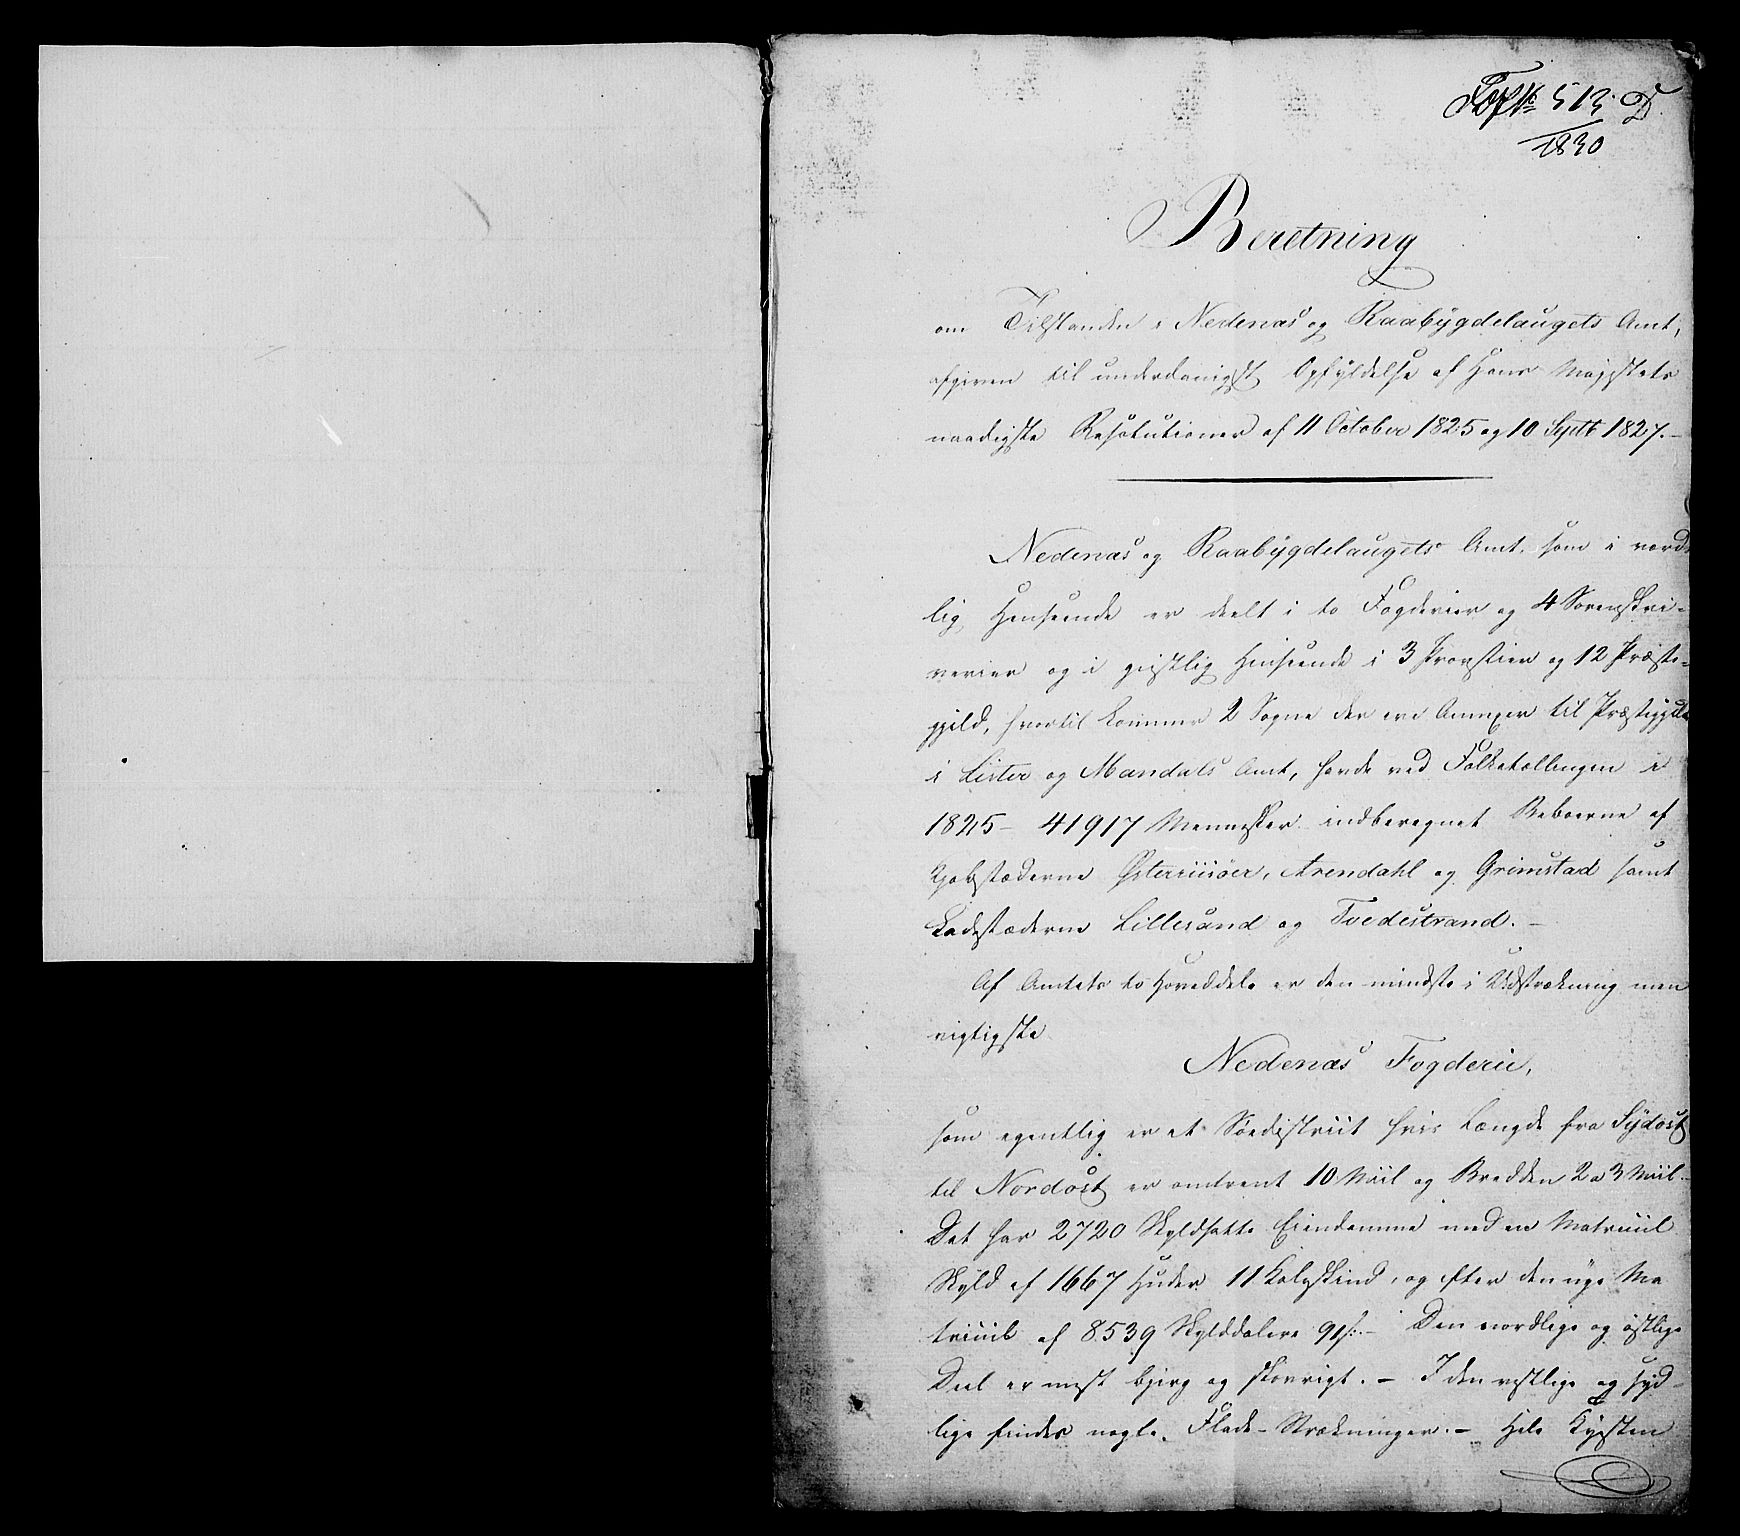 513. D.
1830
Beretning
om Tilstanden i Nedenæs og Raabÿgdelaugets Amt,
afgiven til underdanigst Opfÿldelse af Hans Majestæts
naadigste Resolutioner af 11 October 1825 og 10 Septb 1827.-
Nedenæs og Raabÿgdelaugets Amt. som i verds
lig Henseende er deelt i to Fogderier og 4 Sorenskri-
verier og i geistlig Henseende i 3 Provstier og 12 Præste-
gjeld, hvortil kommer 2 Sogne der ere Annexer til Præstegjelde
i Lister og Mandals Amt, havde ved Folketællingen i
1825 - 41917 Mennesker indberegnet Beboerne af
Kjøbstæderne Østerriisöer, Arendahl og Grimstad samt
Ladestæderne Lillesand og Tvedestrand. -
Af Amtets to Hoveddele er den mindste i Udstrækning men
vigtigste
Nedenæs Fogderie,
som egentlig er et Söedistrict hvis Længde fra Sÿdost
til Nordost er omtrent 10 Miil og Bredden 2 a 3 Miil -
Det har 2720 Skyldsatte Eiendomme med en Matricul
Skyld af 1667 Huder 11 Kalvskind, og efter den nye Ma
tricul af 8539 Skylddalere 91 s. - Den nordlige og østlige
Deel er mest bjerg og skovrigt. - I den vestlige og syd-
lige findes nogle Flade-Strækninger. - Hele Kysten